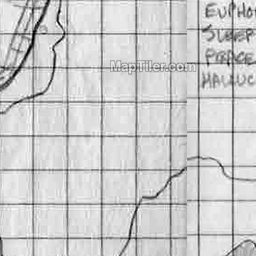 EUPHO
SLEEP
PEACE
HALLUC
MapTiler.com